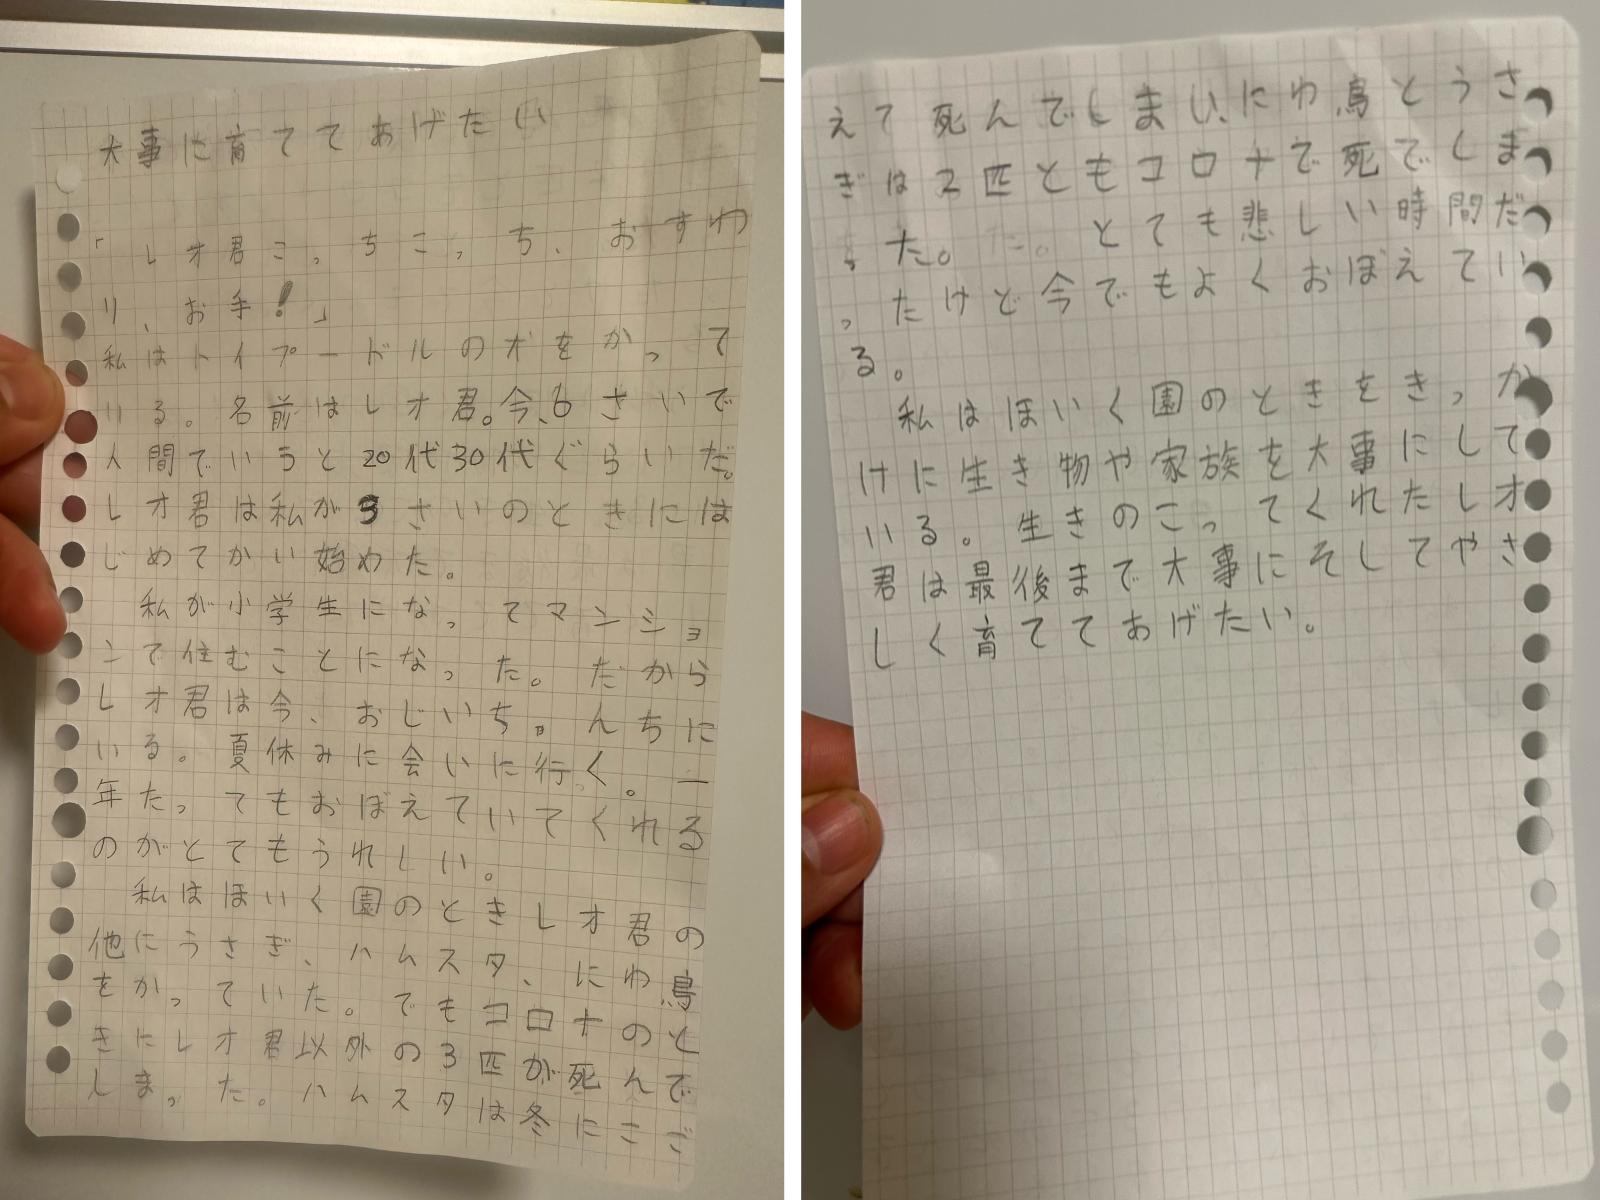 大事に育ててあげたい
「レオ君こっちこっち、おすわ
り、お手！」
私はトイプードルのオをかって
いる。名前はレオ君。今、6さいで
人間でいうと20代30代ぐらいだ。
レオ君は私が3さいのときには
じめてかい始めた。
私が小学生になってマンショ
ンで住むことになった。だから
レオ君は今、おじいちゃんちに
いる。夏休みに会いに行く。一
年たってもおぼえていてくれる
のがとてもうれしい。
私はほいく園のときレオ君の
他にうさぎ、ハムスタ、にわ鳥
をかっていた。でもコロナのと
きにレオ君以外の3匹が死んで
しまった。ハムスタは冬にこご
えて死んでしまい、にわ鳥とうさ
ぎは2匹ともコロナで死でしま
った。た。とても悲しい時間だ
ったけど今でもよくおぼえてい
る。
私はほいく園のときをきっか
けに生き物や家族を大事にして
いる。生きのこってくれたレオ
君は最後まで大事にそしてやさ
しく育ててあげたい。